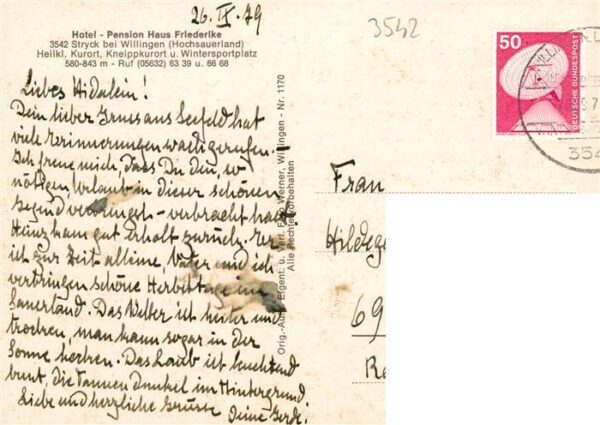 26. IX. 79
3542
Hotel - Pension Haus Friederike
3542 Stryck bei Willingen (Hochsauerland)
Heilkl. Kurort, Kneippkurort u. Wintersportplatz
580-843 m - Ruf (05632) 63 39 u. 66 68
Liebes Hidalein!
Dein lieber Gruss aus Seefeld hat
viele Erinnerungen wachgerufen.
Ich freue mich, dass Du den, so
nötigen Urlaub in dieser schönen
Gegend verbracht hast.
Heinz kam gut erholt zurück. Er
ist zur Zeit alleine, Vater und ich
verbringen schöne Herbsttage im
Sauerland. Das Wetter ist heiter und
trocken, man kann sogar in der
Sonne hocken. Das Laub ist leuchtend
bunt, die Tannen dunkel im Hintergrund.
Liebe und herzliche Grüsse
Deine Gerda.
Orig.-Aufn. Eigent. u. Verl. Werner, Willingen - Nr. 1170
Alle Rechte vorbehalten
50
DEUTSCHE BUNDESPOST
354
Frau
Hildeg
69